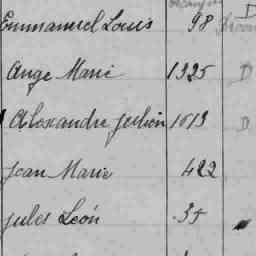 Emmanuel Louis 98
Ange Marie 1325 D
Alexandre Julien 1013 D
Jean Marie 422
Jules Léon 35